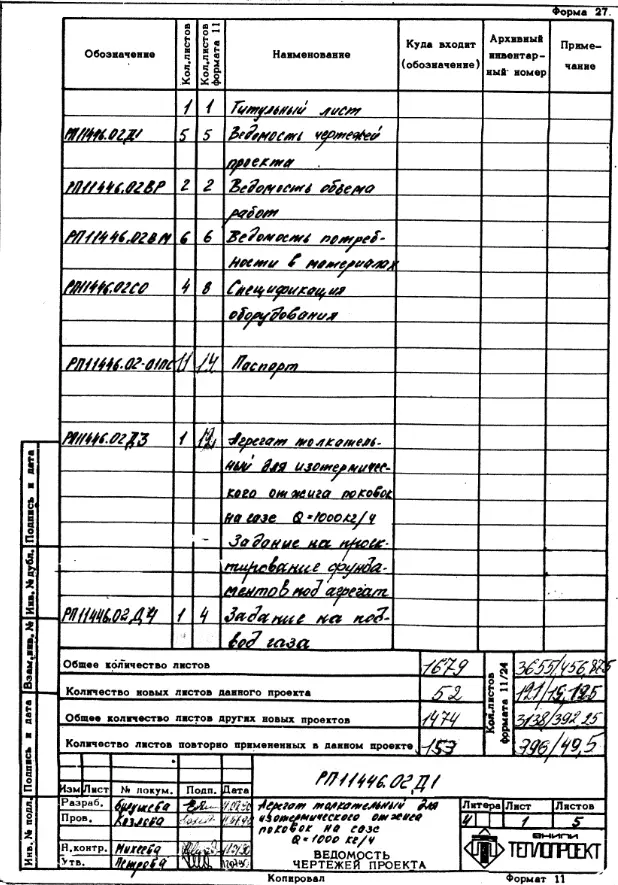 Форма 27.
Обозначение Кол.листов Кол.листов формата 11 Наименование Куда входит (обозначение) Архивный инвентар-ный номер Приме-чание
1 1 Титульный лист
РП11446.02Д1 5 5 Ведомость чертежей
проекта
РП11446.02ВР 2 2 Ведомость объема
работ
РП11446.02ВМ 6 6 Ведомость потреб-
ности в материалах
РП11446.02СО 4 8 Спецификация
оборудования
РП11446.02-01ПС 11 14 Паспорт
РП11446.02Д3 1 Агрегат толкатель-
ный для изотермичес-
кого отжига поковок
на газе Q=1000кг/ч
Задание на проек-
тирование фунда-
ментов под агрегат
РП11446.02Д4 1 4 Задание на под-
вод газа
Общее количество листов 1679 Кол.листов формата 11/24 3655/456,875
Количество новых листов данного проекта 52 121/15,125
Общее количество листов других новых проектов 1474 3138/392,25
Количество листов повторно примененных в данном проекте 153 396/49,5
РП11446.02Д1
Изм Лист № докум. Подп. Дата
Разраб.
Пров. Козлова
Н.контр. Михеева
Утв. Петрова
Агрегат толкательный для
изотермического отжига
поковок на газе
Q=1000 кг/ч
ВЕДОМОСТЬ
ЧЕРТЕЖЕЙ ПРОЕКТА
Литера Лист Листов
1 5
ВНИПИ
ТЕПЛОПРОЕКТ
Копировал Формат 11
Инв. № подл. Подпись и дата Взам.инв. № Инв. № дубл. Подпись и дата